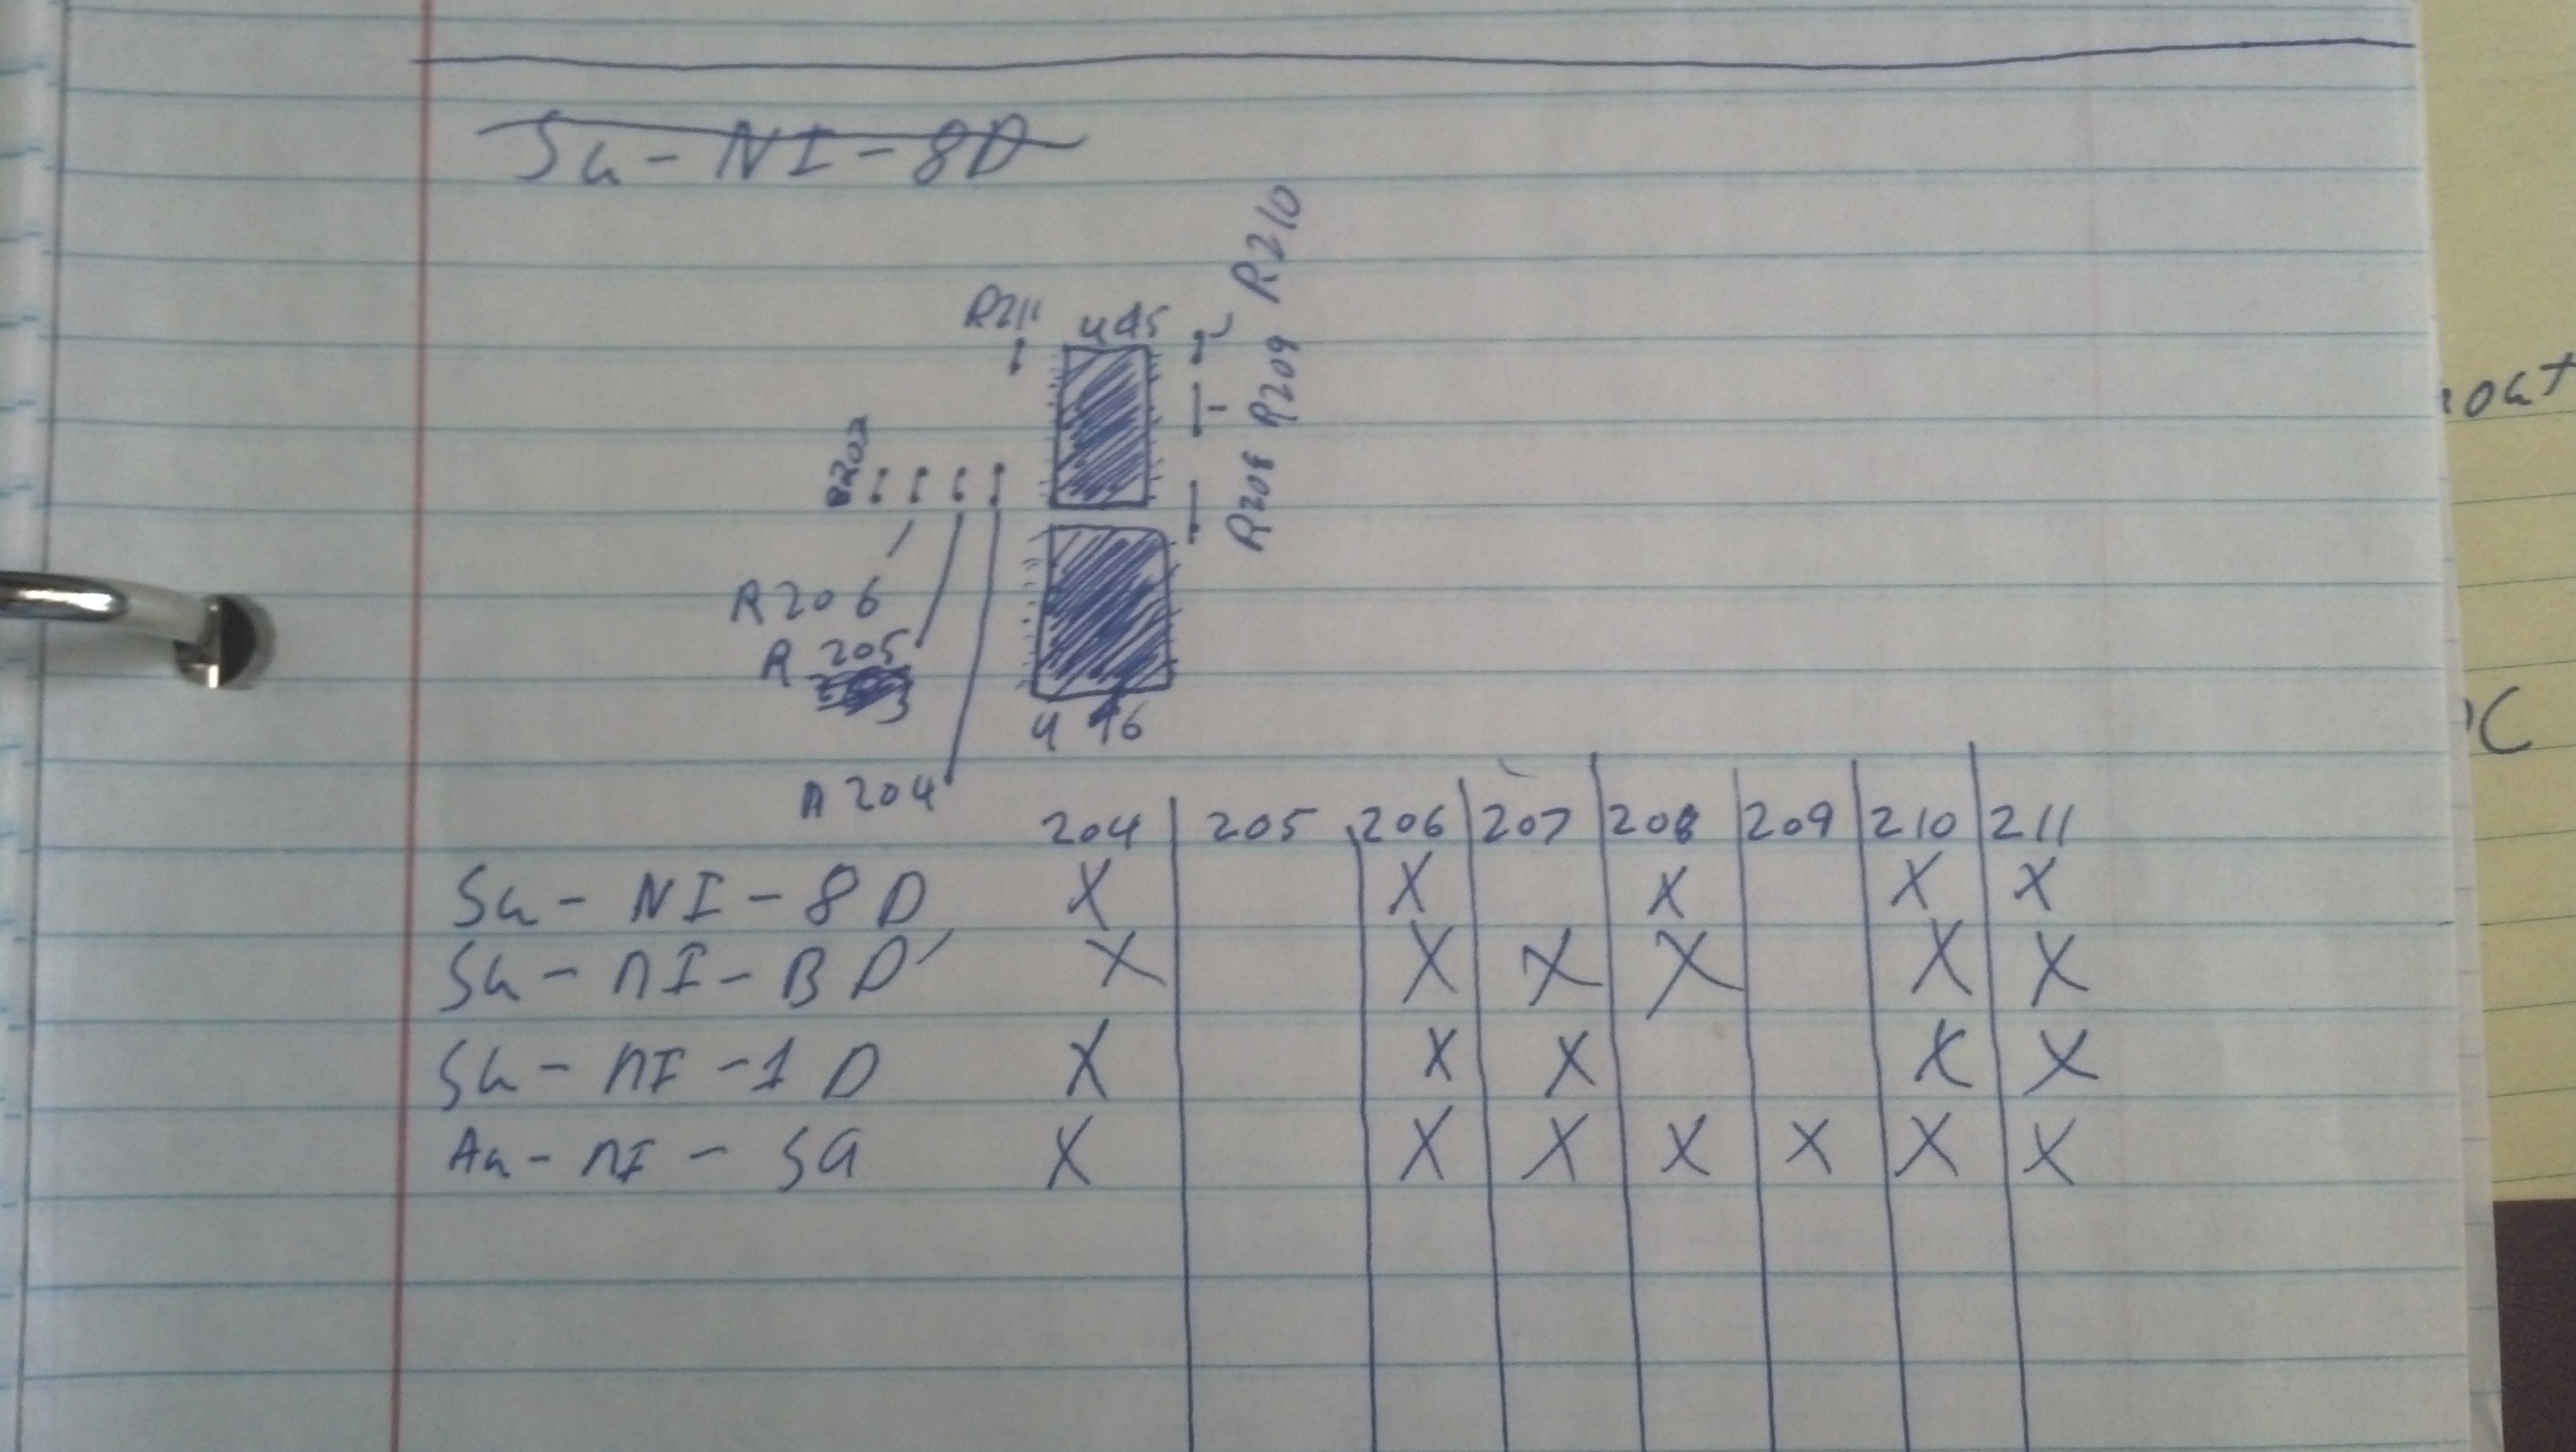 Su-NI-8D
R210
R211 U45
R209
R208
R206
R 205
U 46
R 204
204 205 206 207 208 209 210 211
Su- NI-8 D X X X X X
Su- NI-B D' X X X X X X
Su- NI -1 D X X X X X
Au- NI - SG X X X X X X X
out
C